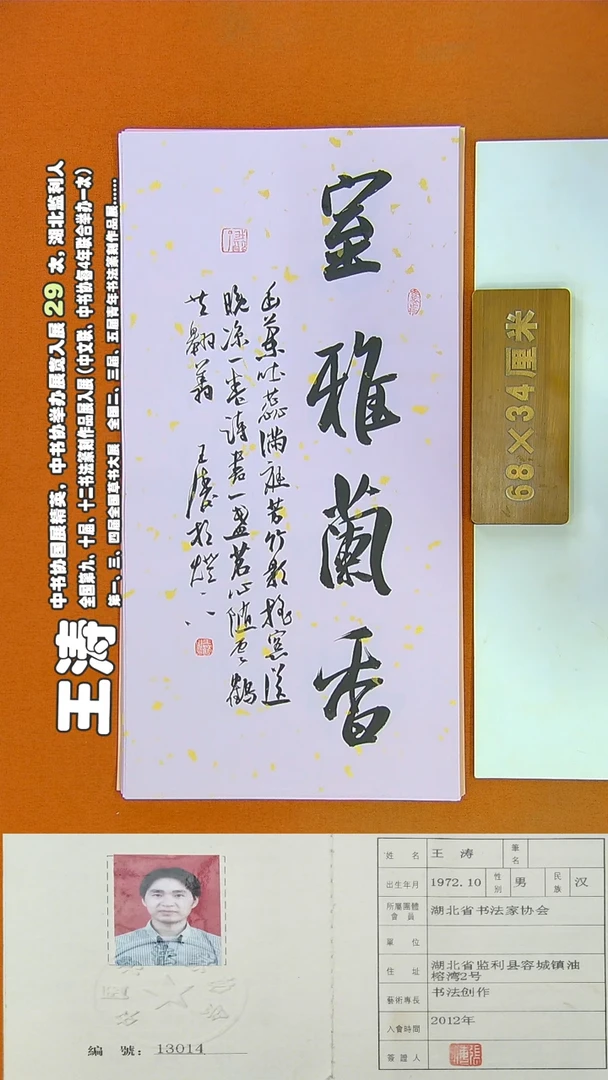 王涛
中书协国展精英，中书协举办展赛入展29次，湖北监利人
全国第九、十届、十二书法篆刻作品展入展（中文联、中书协每4年联合举办一次）
第一、三、四届全国草书大展 全国二、三届、五届青年书法篆刻作品展……
室雅蘭香
幽蘭吐蕊滿庭芳竹影搖窗送
晚涼一卷詩書一盞茗心隨雲鶴
共翱翔
68×34厘米
編號：13014
姓名 王涛 筆名
出生年月 1972.10 性别 男 民族 汉
所屬團體會員 湖北省书法家协会
單位
住址 湖北省监利县容城镇油榕湾2号
藝術專長 书法创作
入會時間 2012年
簽證人